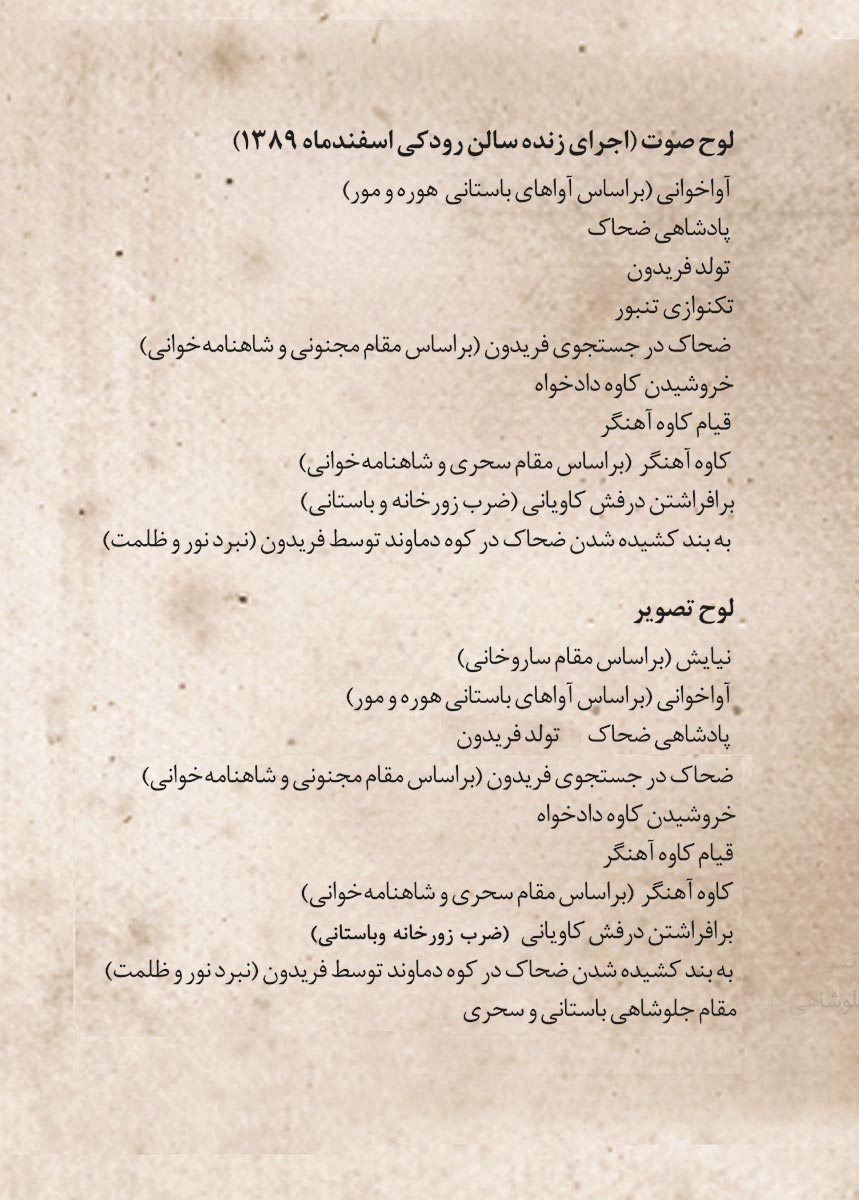 لوح صوت (اجرای زنده سالن رودکی اسفندماه ۱۳۸۹)
آواخوانی (براساس آواهای باستانی هوره و مور)
پادشاهی ضحاک
تولد فریدون
تکنوازی تنبور
ضحاک در جستجوی فریدون (براساس مقام مجنونی و شاهنامه‌خوانی)
خروشیدن کاوه دادخواه
قیام کاوه آهنگر
کاوه آهنگر (براساس مقام سحری و شاهنامه‌خوانی)
برافراشتن درفش کاویانی (ضرب زورخانه و باستانی)
به بند کشیده شدن ضحاک در کوه دماوند توسط فریدون (نبرد نور و ظلمت)
لوح تصویر
نیایش (براساس مقام ساروخانی)
آواخوانی (براساس آواهای باستانی هوره و مور)
پادشاهی ضحاک تولد فریدون
ضحاک در جستجوی فریدون (براساس مقام مجنونی و شاهنامه‌خوانی)
خروشیدن کاوه دادخواه
قیام کاوه آهنگر
کاوه آهنگر (براساس مقام سحری و شاهنامه‌خوانی)
برافراشتن درفش کاویانی (ضرب زورخانه وباستانی)
به بند کشیده شدن ضحاک در کوه دماوند توسط فریدون (نبرد نور و ظلمت)
مقام جلوشاهی باستانی و سحری